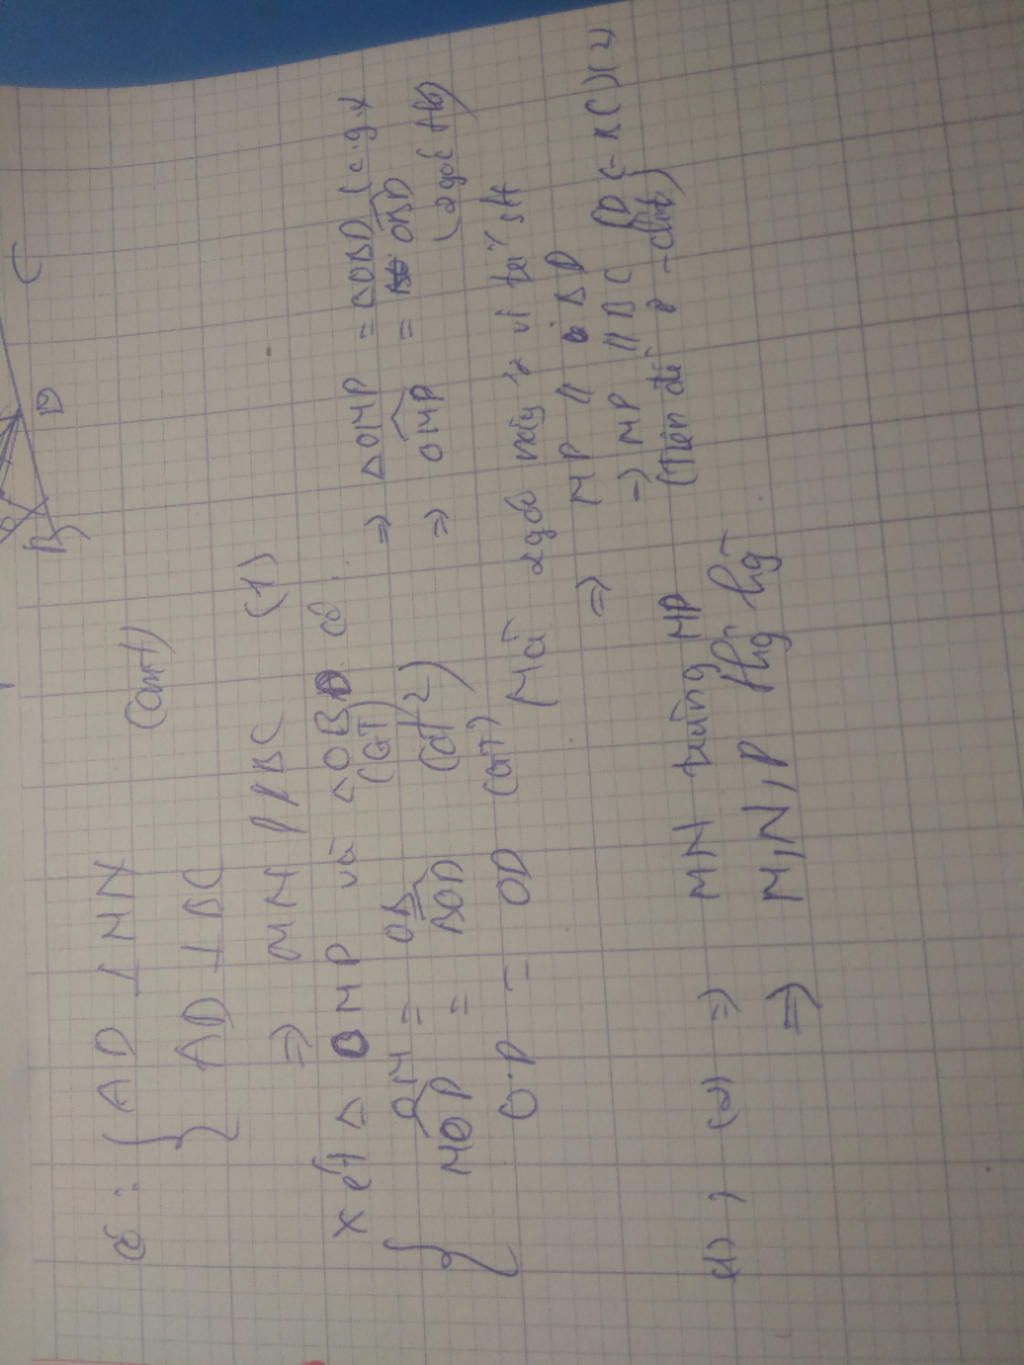 C
D
B
có : { AD ⊥ MN (cmt)
AD ⊥ BC
⇒ MN // BC (1)
Xét Δ OMP và Δ OBD có :
{ OM = OB (GT)
MOP = BOD (đđ)
OP = OD (GT)
⇒ ΔOMP = ΔOBD (c.g.c)
⇒ OMP = OBD
(2 góc t/ứ)
Mà 2 góc này ở vị trí slt
⇒ MP // BD
⇒ MP // BC (D ∈ BC) (2)
(Tiên đề Ơ-clit)
(1) , (2) ⇒ MN trùng MP
⇒ M,N,P thg hg